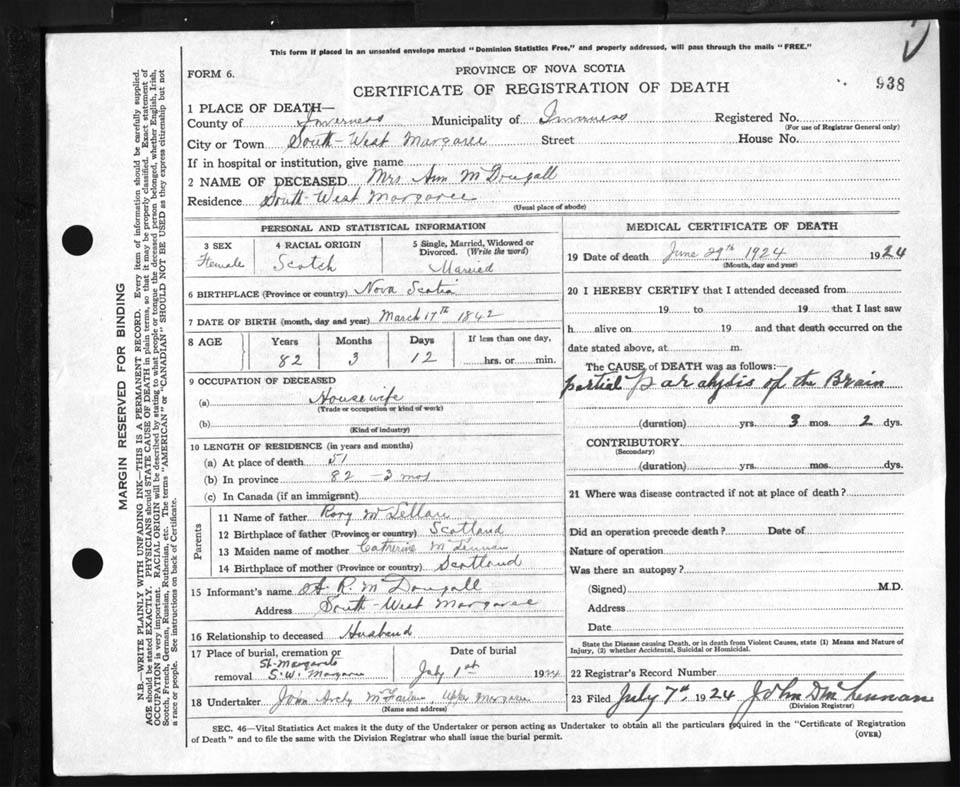 This form if placed in an unsealed envelope marked "Dominion Statistics Free," and properly addressed, will pass through the mails "FREE."
FORM 6.
PROVINCE OF NOVA SCOTIA
CERTIFICATE OF REGISTRATION OF DEATH
938
1 PLACE OF DEATH—
County of Inverness Municipality of Inverness Registered No.
(For use of Registrar General only)
City or Town South-West Margaree Street House No.
If in hospital or institution, give name
2 NAME OF DECEASED Mrs Ann McDougall
Residence South-West Margaree
(Usual place of abode)
PERSONAL AND STATISTICAL INFORMATION
3 SEX 4 RACIAL ORIGIN 5 Single, Married, Widowed or Divorced. (Write the word)
Female Scotch Married
6 BIRTHPLACE (Province or country) Nova Scotia
7 DATE OF BIRTH (month, day and year) March 17th 1842
8 AGE Years Months Days If less than one day,
82 3 12 hrs. or min.
9 OCCUPATION OF DECEASED
(a) Housewife
(Trade or occupation or kind of work)
(b)
(Kind of industry)
10 LENGTH OF RESIDENCE (in years and months)
(a) At place of death 51
(b) In province 82 - 3 mos
(c) In Canada (if an immigrant)
Parents
11 Name of father Rory McLellan
12 Birthplace of father (Province or country) Scotland
13 Maiden name of mother Catherine McLennan
14 Birthplace of mother (Province or country) Scotland
15 Informant's name A. R. McDougall
Address South-West Margaree
16 Relationship to deceased Husband
17 Place of burial, cremation or removal St. Margarets S.W. Margaree
Date of burial
July 1st 1924
18 Undertaker John Archy Upper Margaree
(Name and address)
MEDICAL CERTIFICATE OF DEATH
19 Date of death June 29th 1924 1924
(Month, day and year)
20 I HEREBY CERTIFY that I attended deceased from
19 to 19 that I last saw
h alive on 19 and that death occurred on
date stated above, at m.
The CAUSE of DEATH was as follows:—
partial paralysis of the Brain
(duration) yrs. 3 mos. 2 dys.
CONTRIBUTORY
(Secondary)
(duration) yrs. mos. dys.
21 Where was disease contracted if not at place of death?
Did an operation precede death? Date of
Nature of operation
Was there an autopsy?
(Signed) M.D.
Address
Date
State the Disease causing Death, or in death from Violent Causes, state (1) Means and Nature of
Injury, (2) whether Accidental, Suicidal or Homicidal.
22 Registrar's Record Number
23 Filed July 7th 1924 John D McLennan
(Division Registrar)
SEC. 46—Vital Statistics Act makes it the duty of the Undertaker or person acting as Undertaker to obtain all the particulars required in the "Certificate of Registration
of Death" and to file the same with the Division Registrar who shall issue the burial permit.
(OVER)
MARGIN RESERVED FOR BINDING
N.B.—WRITE PLAINLY WITH UNFADING INK—THIS IS A PERMANENT RECORD. Every item of information should be carefully supplied.
AGE should be stated EXACTLY. PHYSICIANS should STATE CAUSE OF DEATH in plain terms, so that it may be properly classified. Exact statement of
OCCUPATION is very important. RACIAL ORIGIN will be described by stating to what people or tongue the deceased person belonged, whether English, Irish,
Scotch, French, German, Russian, Ruthenian, etc. The terms "AMERICAN" or "CANADIAN" SHOULD NOT BE USED as they express citizenship but not
a race or people. See instructions on back of Certificate.